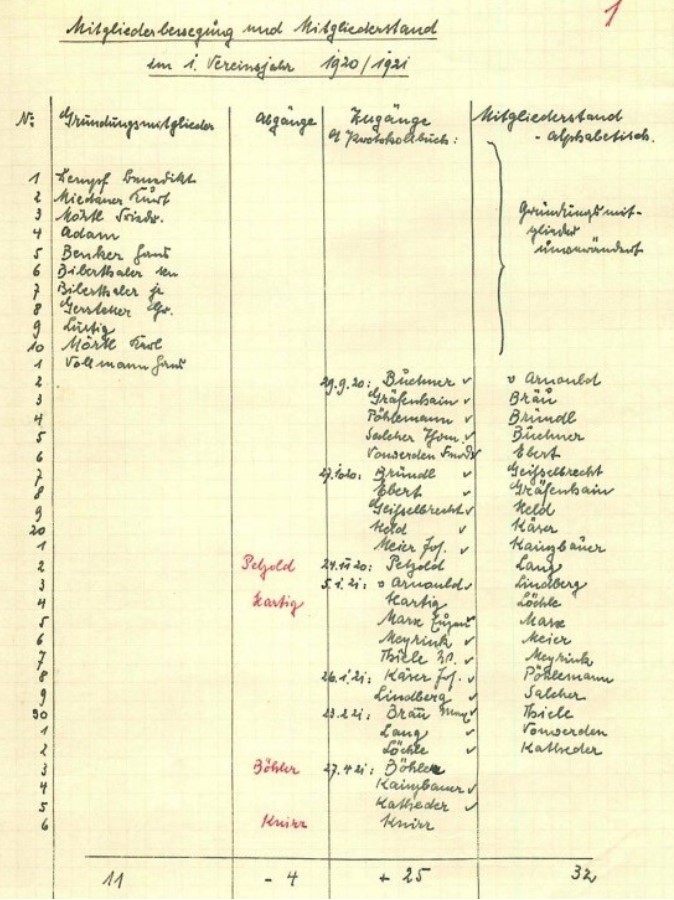 1
Mitgliederbewegung und Mitgliederstand
im 1. Vereinsjahr 1920/1921
Nr. Gründungsmitglieder Abgänge Zugänge Mitgliederstand
Protokollbuch: - alphabetisch.
1 Lempf Benedikt
2 Miedaner Kurt
3 Mörtl Friedr. Gründungsmit-
4 Adam glieder
5 Benker Hans unverändert
6 Biberthaler sen
7 Biberthaler jr
8 Gerstetter Gg.
9 Lustig
10 Mörtl Karl
1 Vollmann Hans
2 29.9.20: Büchner v v Arnauld
3 Gräfenhain v Bräu
4 Pöhlemann v Bründl
5 Salcher Thom. v Büchner
6 Vonwerden v Ebert
7 27.10.20: Bründl v Geisselbrecht
8 Ebert v Gräfenhain
9 Geisselbrecht v Held
20 Held v Käser
1 Meier Jos. v Kainzbauer
2 Petzold 24.11.20: Petzold Lang
3 5.1.21: v Arnauld v Lindberg
4 Hartig Hartig Löchle
5 Marx Eugen v Marx
6 Meyrink v Meier
7 Thiele v Meyrink
8 26.1.21: Käser Jos. v Pöhlemann
9 Lindberg v Salcher
30 23.2.21: Bräu Max v Thiele
1 Lang v Vonwerden
2 Löchle v Katheder
3 Böhler 27.4.21: Böhler
4 Kainzbauer v
5 Katheder v
6 Knirr Knirr
11 - 4 + 25 32